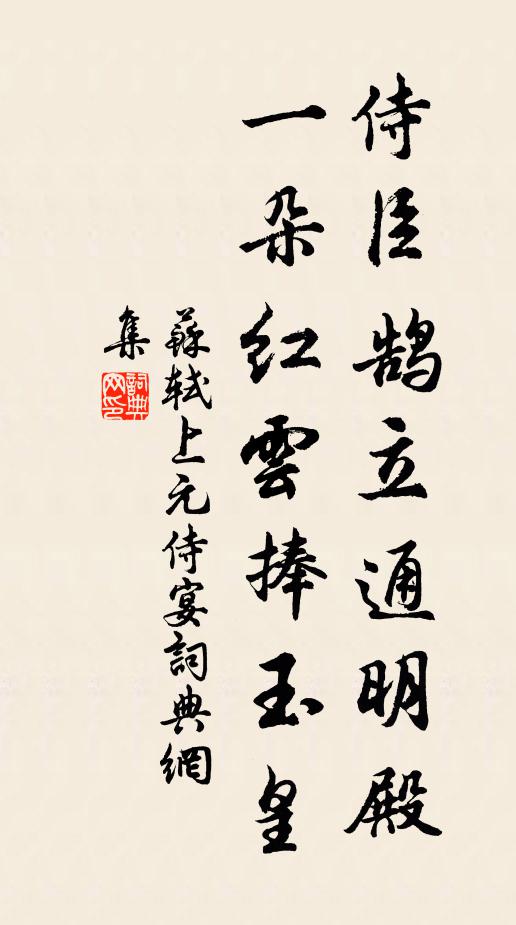 侍臣鹄立通明殿
一朵红雲捧玉皇
蘇軾上元侍宴詞典網
集
詞典
网印